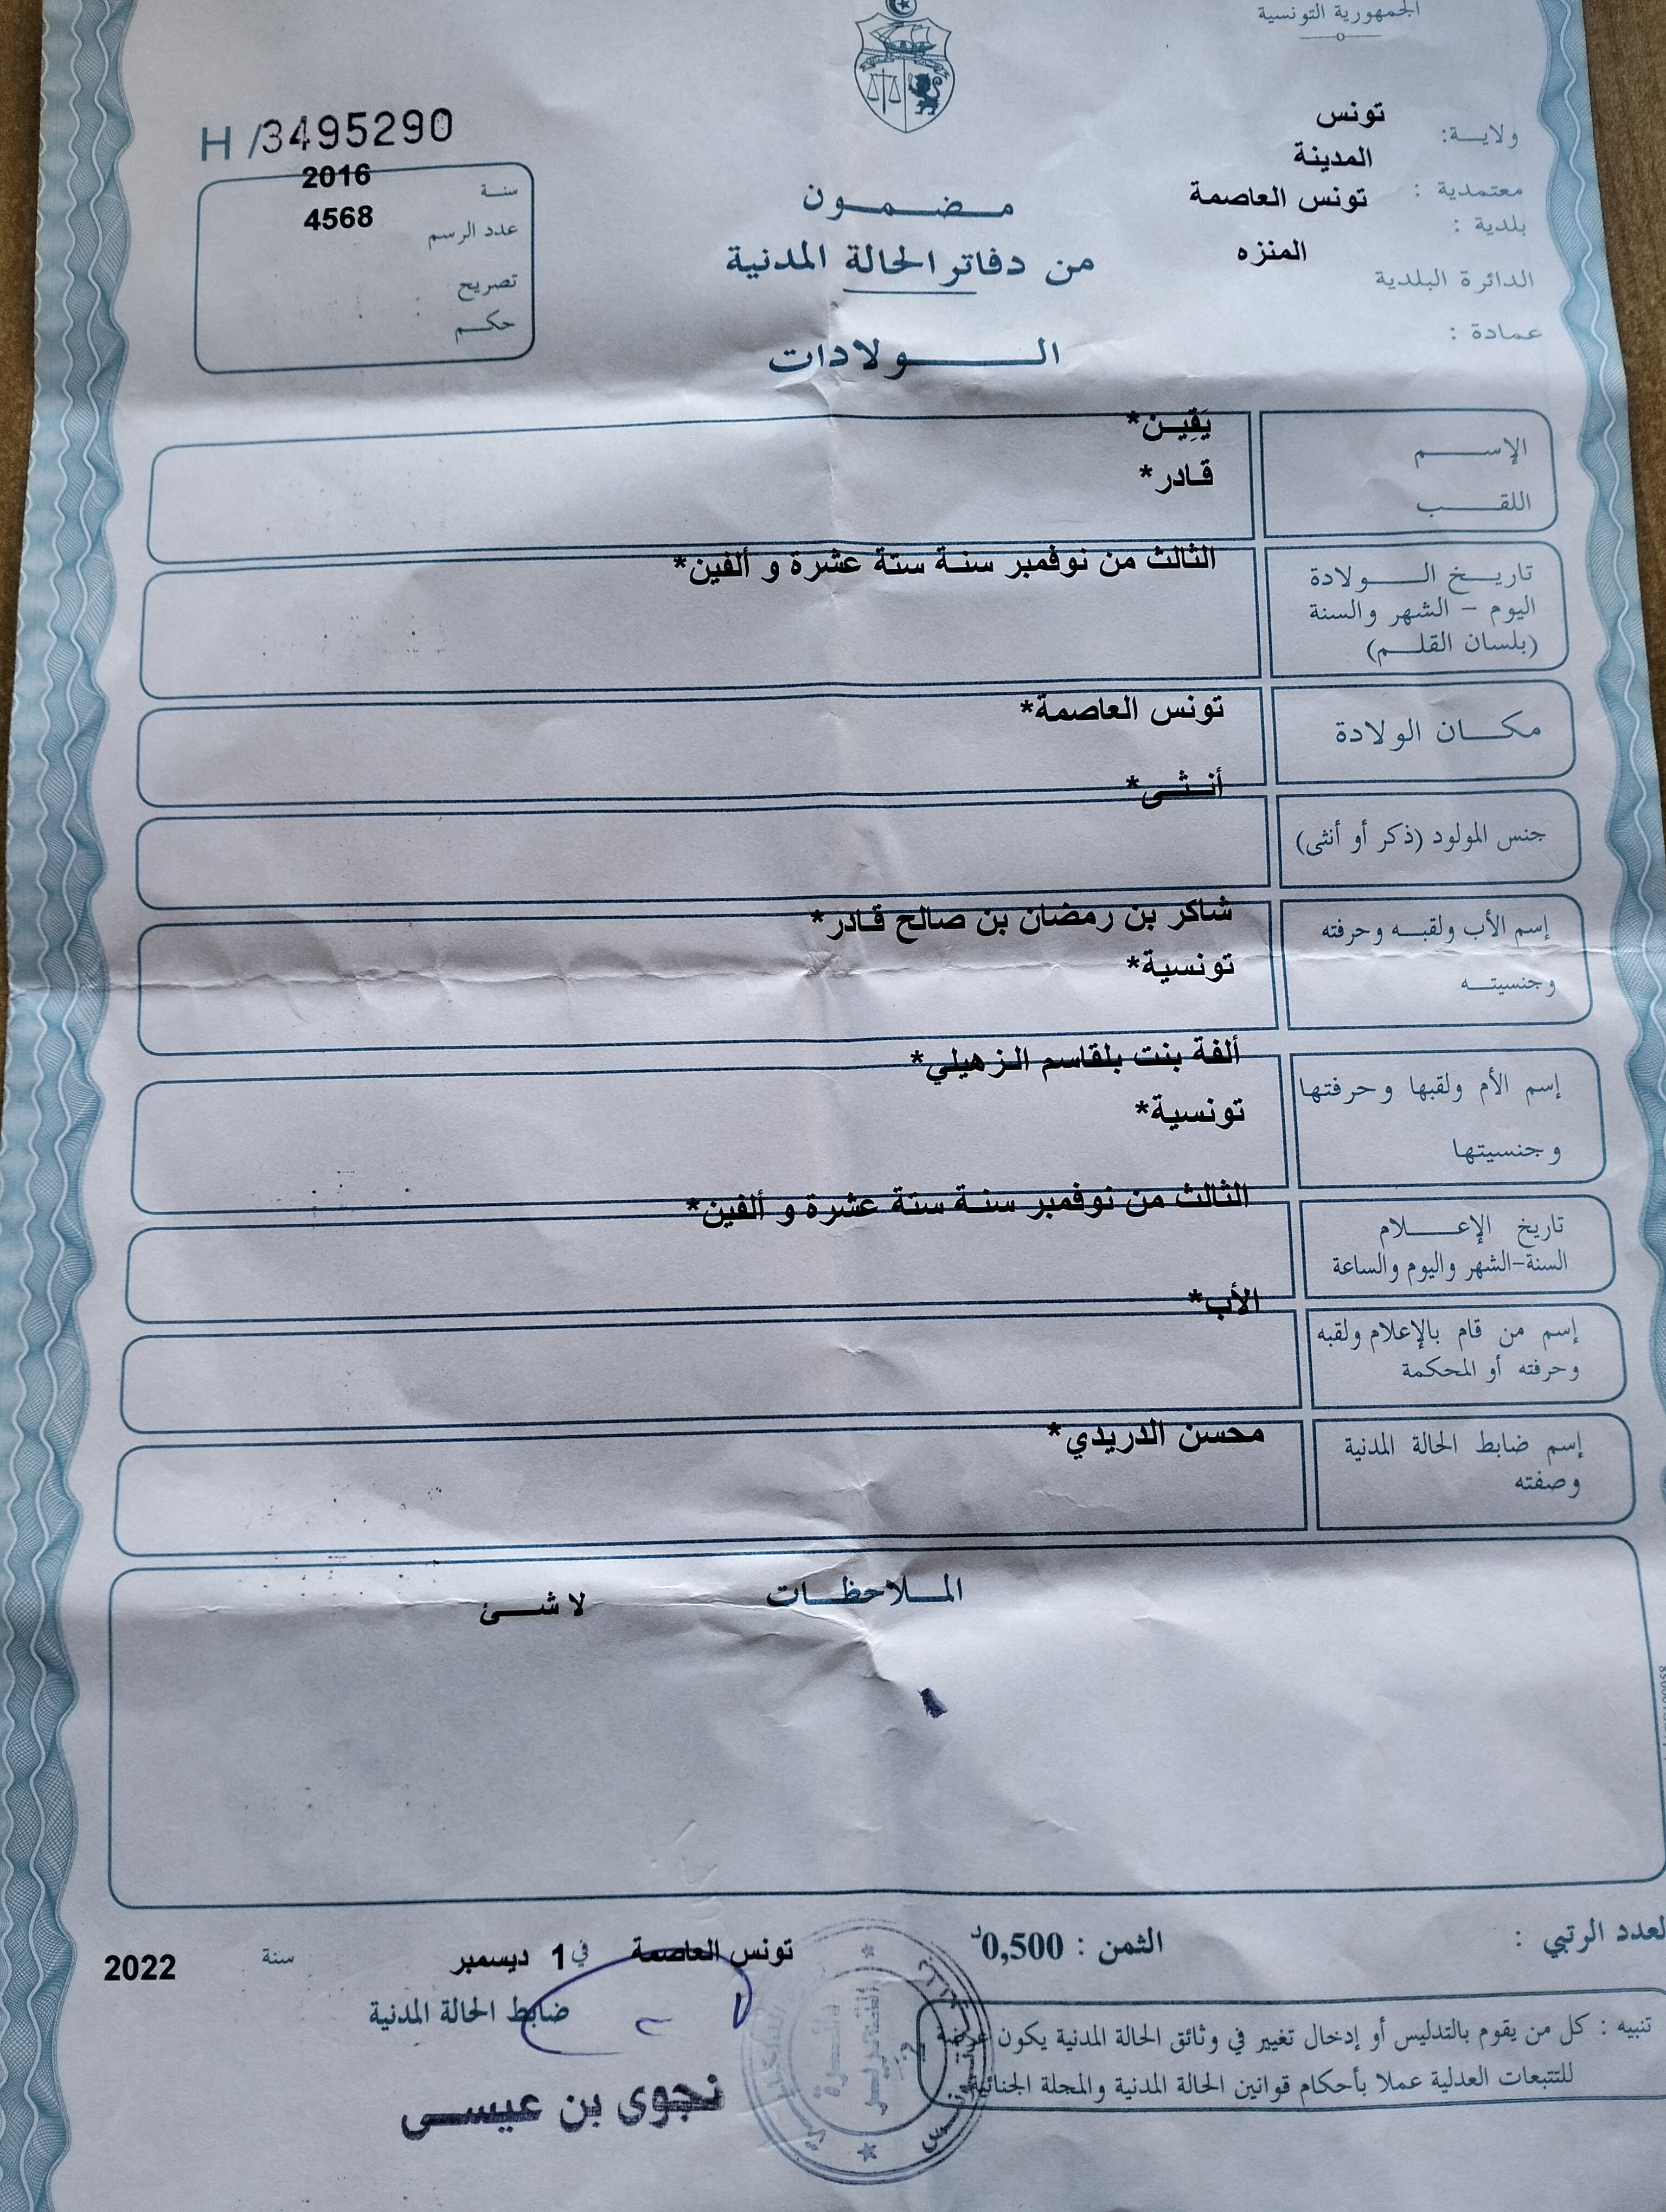 الجمهورية التونسية
ولاية: تونس
معتمدية : المدينة
بلدية : تونس العاصمة
الدائرة البلدية المنزه
عمادة :
H /3495290
سنة 2016
عدد الرسم 4568
تصريح
حكم
مضمون
من دفاتر الحالة المدنية
الولادات
الإسم يَقِين*
اللقب قادر*
تاريخ الولادة الثالث من نوفمبر سنة ستة عشرة و ألفين*
اليوم - الشهر والسنة
(بلسان القلم)
مكان الولادة تونس العاصمة*
جنس المولود (ذكر أو أنثى) أنثى*
إسم الأب ولقبه وحرفته شاكر بن رمضان بن صالح قادر*
وجنسيته تونسية*
إسم الأم ولقبها وحرفتها ألفة بنت بلقاسم الزهيلي*
وجنسيتها تونسية*
تاريخ الإعلام الثالث من نوفمبر سنة ستة عشرة و ألفين*
السنة-الشهر واليوم والساعة
إسم من قام بالإعلام ولقبه الأب*
وحرفته أو المحكمة
إسم ضابط الحالة المدنية محسن الدريدي*
وصفته
الملاحظات لا شئ
لعدد الرتبي :
الثمن : 0,500د
تونس العاصمة في 1 ديسمبر سنة 2022
ضابط الحالة المدنية
نجوى بن عيسى
تنبيه : كل من يقوم بالتدليس أو إدخال تغيير في وثائق الحالة المدنية يكون عرضة
للتتبعات العدلية عملا بأحكام قوانين الحالة المدنية والمجلة الجنائية